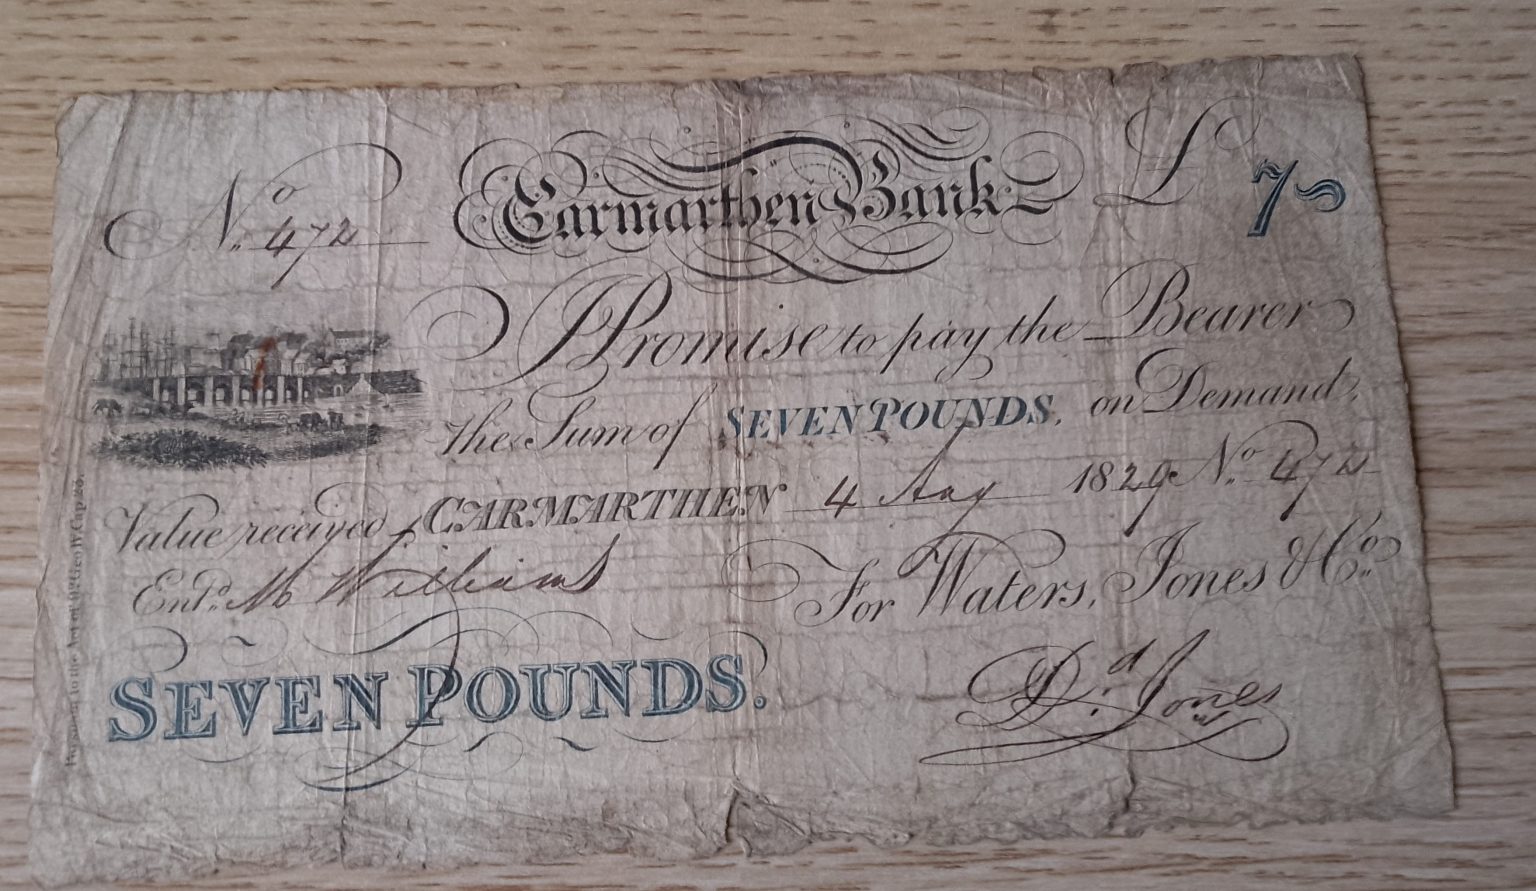 No. 472 Carmarthen Bank £ 7
I Promise to pay the Bearer
the Sum of SEVEN POUNDS, on Demand,
Value received, CARMARTHEN 4 Aug 1829 No. 472
Entd. M Williams For Waters, Jones & Co.
SEVEN POUNDS. Dd. Jones
to the Act of